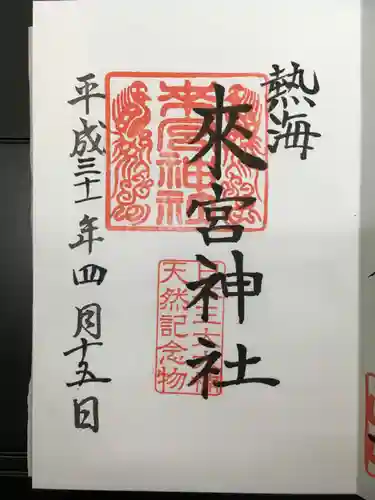 熱海
來宮神社
平成三十一年四月十五日
來宮神社
天然記念物